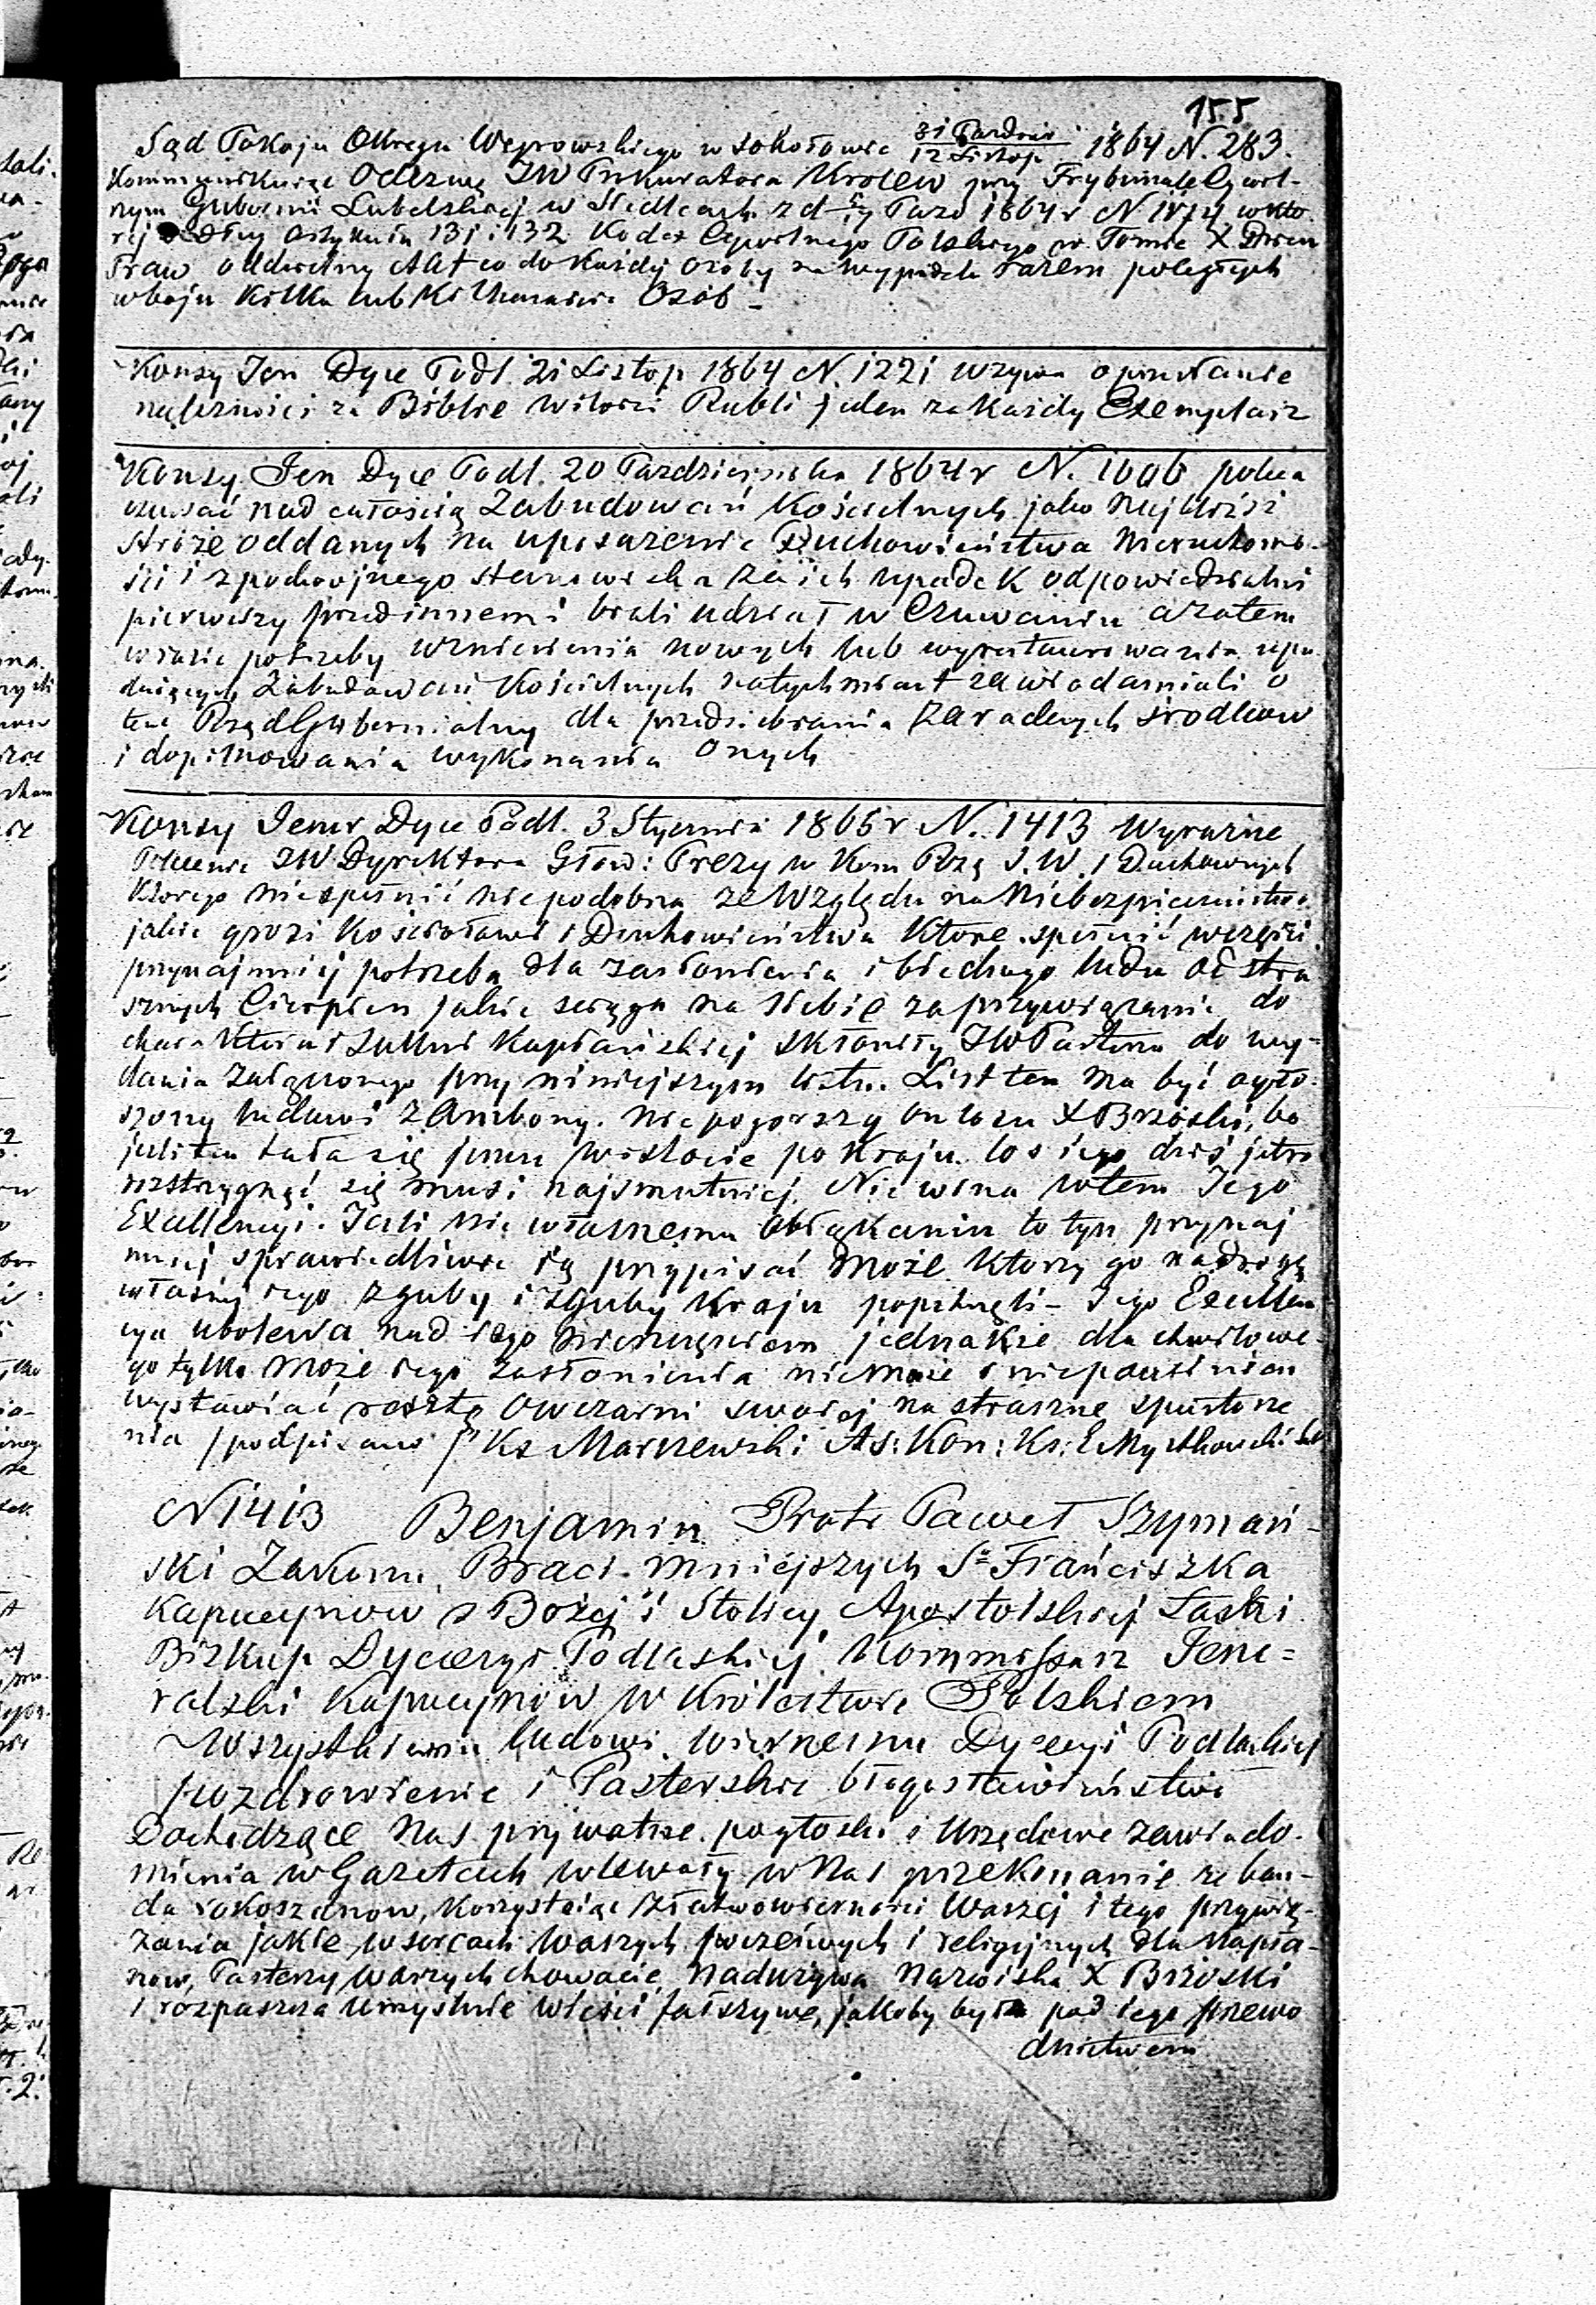 155
Sąd Pokoju Okręgu Węgrowskiego w Sokołowie 31 Paździer / 12 Listop 1864 N. 283.
Kommunikując Odezwę JW Prokuratora Królew przy Trybunale Cywil-
nym Gubernii Lubelskiej w Siedlcach z d Pazd 1864 r N 1874 w któ-
rej według Artykułu 131 i 132 Kodex Cywilnego Polskiego w Tomie X Dzien
Praw oddzielny Akt co do każdej osoby na wypadek razem poległych
w boju kilka lub kilkunastu Osób –
Konsy Jen Dyce Podl. 21 Listop 1864 N. 1221 wzywa o przesłanie
należności za Biblie Rubli jeden za każdy Exemplarz
Konsy. Jen Dyce Podl. 20 Pazdziernika 1864 r N. 1006 poleca
czuwać nad całością Zabudowań Kościelnych jako najbliżsi
stróże oddanych na uposażenie Duchowieństwa nieruchomo-
ści i z podwójnego stanowiska za ich upadek odpowiedzialni
pierwszy przed innemi brali udział w Czuwaniu a zatem
w razie potrzeby wzniesienia nowych lub wyrestaurowania upa-
dających Zabudowań Kościelnych natychmiast zawiadamiali o
tem Rząd Gubernialny dla przedsiebrania zaradczych srodkow
i dopilnowania wykonania Onych
Konsy Jener Dyce Podl. 3 Stycznia 1865 r N. 1413 Wyraźne
Polecenie JW Dyrektora Głów: Prezy w Kom Rzą S. W. i Duchownych
Ktorego niespełnić niepodobna ze Względu na Niebezpieczeństwo
jakie grozi Kościołowi i Duchowieństwu które spełnić wcześniej
przynajmniej potrzeba dla zasłonienia i biednego ludu od stra-
sznych Cierpien jakie sciąga na siebie za przywiązanie do
charakteru i sukni Kapłańskiej skłoniły JW Pasterza do wy-
dania załączonego przy niniejszym listu. List ten ma być ogło-
szony ludowi z Ambony. Nie pogorszy on losu X Brzóski, bo
jeżli ten tuła się jeszcze po Kraju los jego dziś jutro
rozstrzygnąć się musi najsmutniej. Nie wina w tem Jego
Exellencyi. Jeżli nie własnemu obłąkaniu to tym przynaj
mniej sprawiedliwie ją przypisać może ktorzy go na drogę
własnej jego zguby i zguby Kraju popchnęli – Jego Exellen
cya ubolewa nad jego jednakże dla chwilowe-
go tylko może jego zasłonienia nie może i niepowinien
wystawiać resztę Owczarni swojej na straszne spustosze
nia /podpisano/ Ks Marzewski As: Kon: Ks: E Myszkowski
N 1413 Benjamin Piotr Paweł Szymań-
ski Zakonu Braci Mniejszych Sgo Franciszka
Kapucynow z Bożej i Stolicy Apostolskiej Łaski
Biskup Dycezyi Podlaskiej Kommissarz Jene=
ralski Kapucynow w Królestwie Polskiem
Wszystkiemu ludowi wiernemu Dyecezyi Podlaskiej
pozdrowienie i Pasterskie błogosławieństwo
Dochodzące Nas prywatne pogłoski i Urzędowe zawiado-
mienia w Gazetach wlewały w Nas przekonanie że ban-
da rokoszanow, korzystając z łatwowierności Waszej i tego przywią-
zania jakie w sercach Waszych poczciwych i religijnych dla Kapła-
now, Pasterzy Waszych chowacie, nadużywa Nazwiska X Brzoski
i rozpuszcza umyślnie wieści fałszywe, jakoby była pod jego przewo
dnictwem